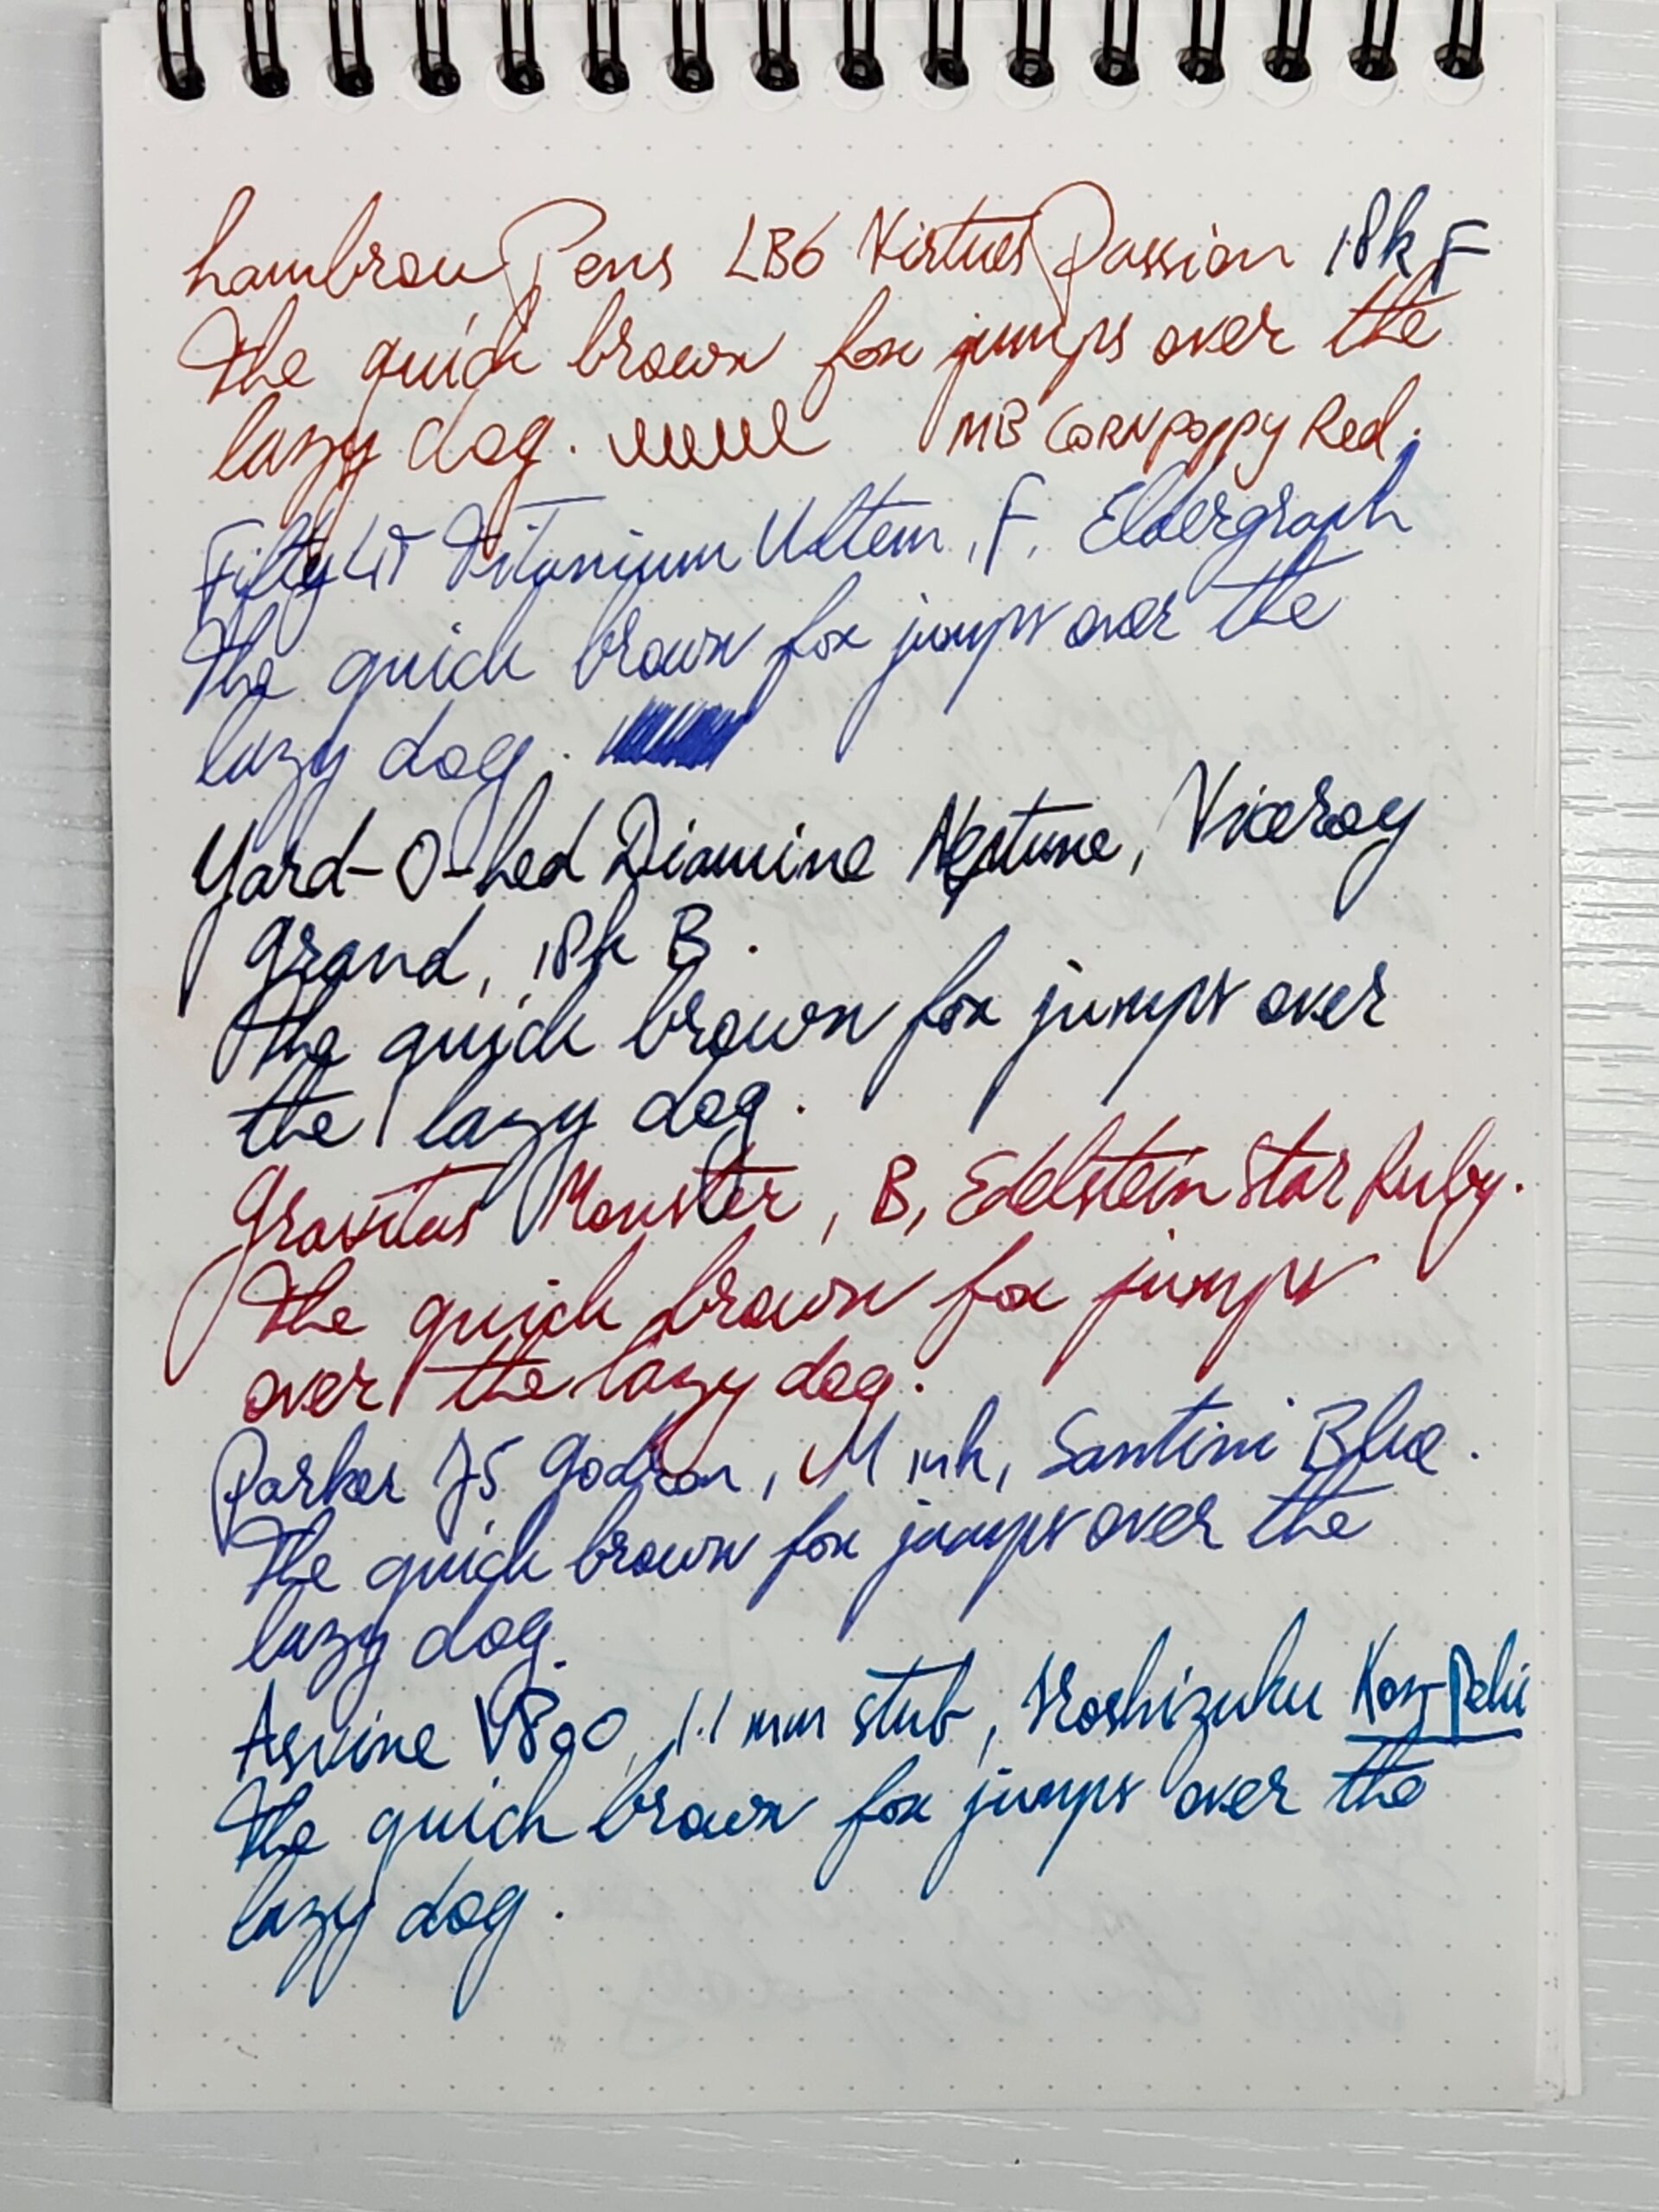 Lambrou Pens LB6 Virtues Passion 18k F
The quick brown fox jumps over the
lazy dog. MB Corn poppy Red.
Fifty4T Titanium Ultem, F, Eldergraph
The quick brown fox jumps over the
lazy dog.
Yard-O-Led Diamine Neptune, Viceroy
Grand, 18k B.
The quick brown fox jumps over
the lazy dog.
Gravitas Monster, B, Edelstein Star Ruby.
The quick brown fox jumps
over the lazy dog.
Parker 75 Godron, M ink, Santini Blue.
The quick brown fox jumps over the
lazy dog.
Asvine V800, 1.1 mm stub, Iroshizuku Kon-Peki
The quick brown fox jumps over the
lazy dog.